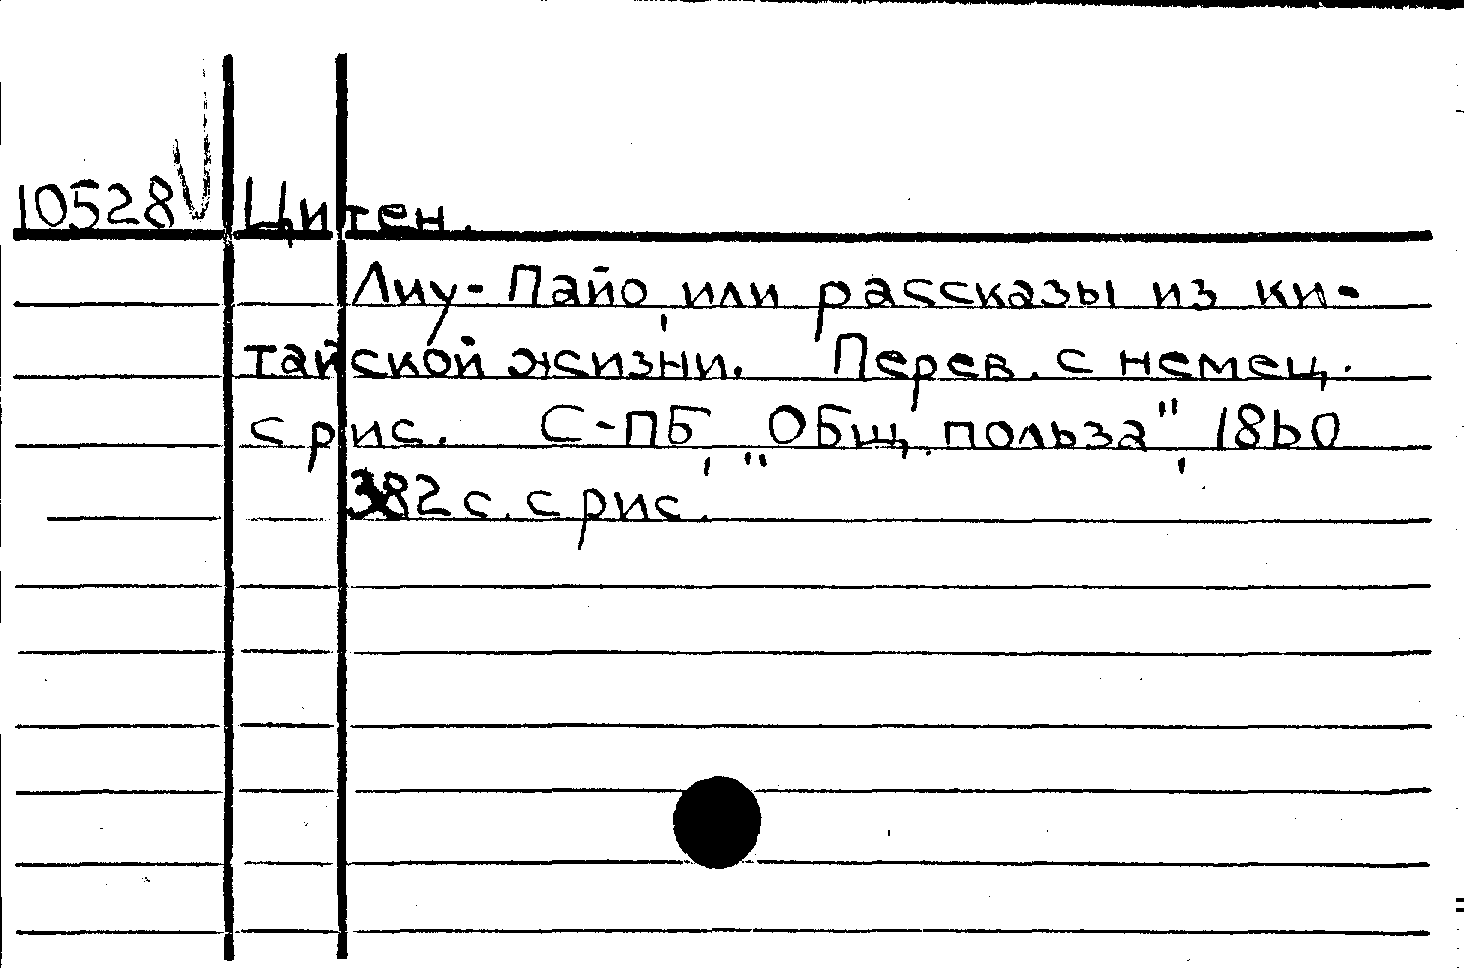 10528 Цитен.
Лиу-Пайо, или рассказы из ки-
тайской жизни. Перев. с немец.
с рис. С-ПБ, "Общ. польза", 1860
382 с. с рис.